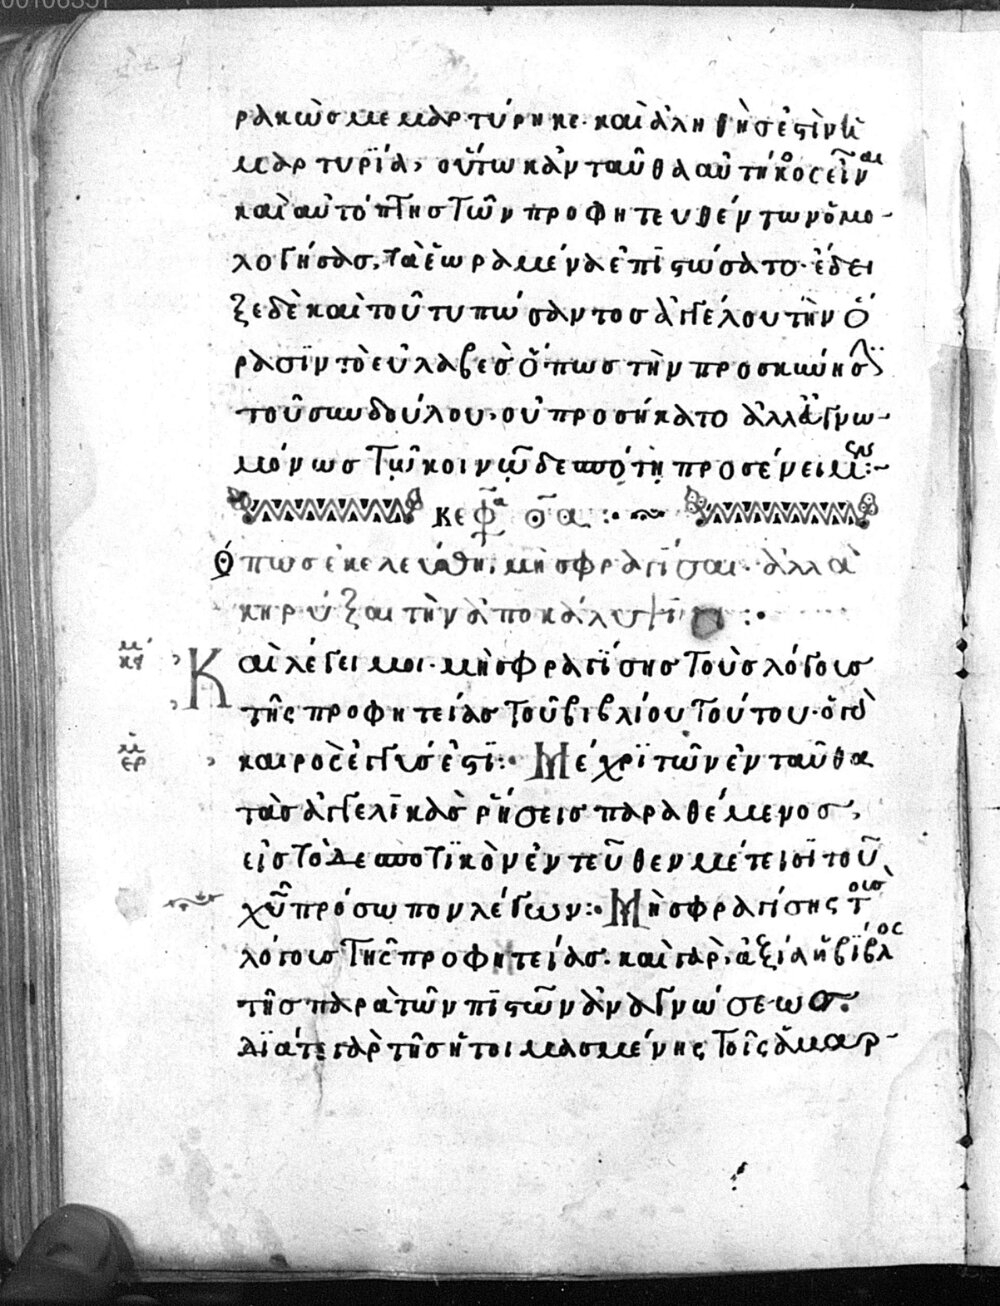 ρακὼς μεμαρτύρηκε· καὶ ἀληθὴς ἐστὶν ἡ
μαρτυρία, οὕτω κἀνταῦθα αὐτήκοος εἶναι
καὶ αὐτόπτης τῶν προφητευθέντων ὁμο-
λογήσας, τὰ ἑωραμένα ἐπιστώσατο· ἔδει
ξε δὲ καὶ τοῦ τυπώσαντος ἀγγέλου τὴν ὅ
ρασιν τὸ εὐλαβὲς ὅπως τὴν προσκύνησιν
τοῦ συνδούλου, οὐ προσήκατο ἀλλ' εὐγνω-
μόνως τῷ κοινῷ δεσπότῃ προσένειμεν:~
κεφα οα :·
Ὅπως ἐκελεύσθη, μὴ σφραγίσαι· ἀλλὰ
κηρύξαι τὴν ἀποκάλυψιν :·
Καὶ λέγει μοι· μὴ σφραγίσης τοὺς λόγους
τῆς προφητείας τοῦ βιβλίου τούτου· ὅτι ὁ
καιρὸς ἐγγύς ἐστι:· Μέχρι τῶν ἐνταῦθα
τὰς ἀγγελικὰς ῥήσεις παραθέμενος,
εἰς τὸ δεσποτικὸν ἐντεῦθεν μέτεισι τοῦ
χῦ πρόσωπον λέγων:· Μὴ σφραγίσης τοὺς
λόγους τῆς προφητείας· καὶ γὰρ, ἀξία ἡ βίβλος
τῆς παρὰ τῶν πιστῶν ἀναγνώσεως.
διά τε γὰρ τῆς ἡτοιμασμένης τοῖς ἁμαρ-